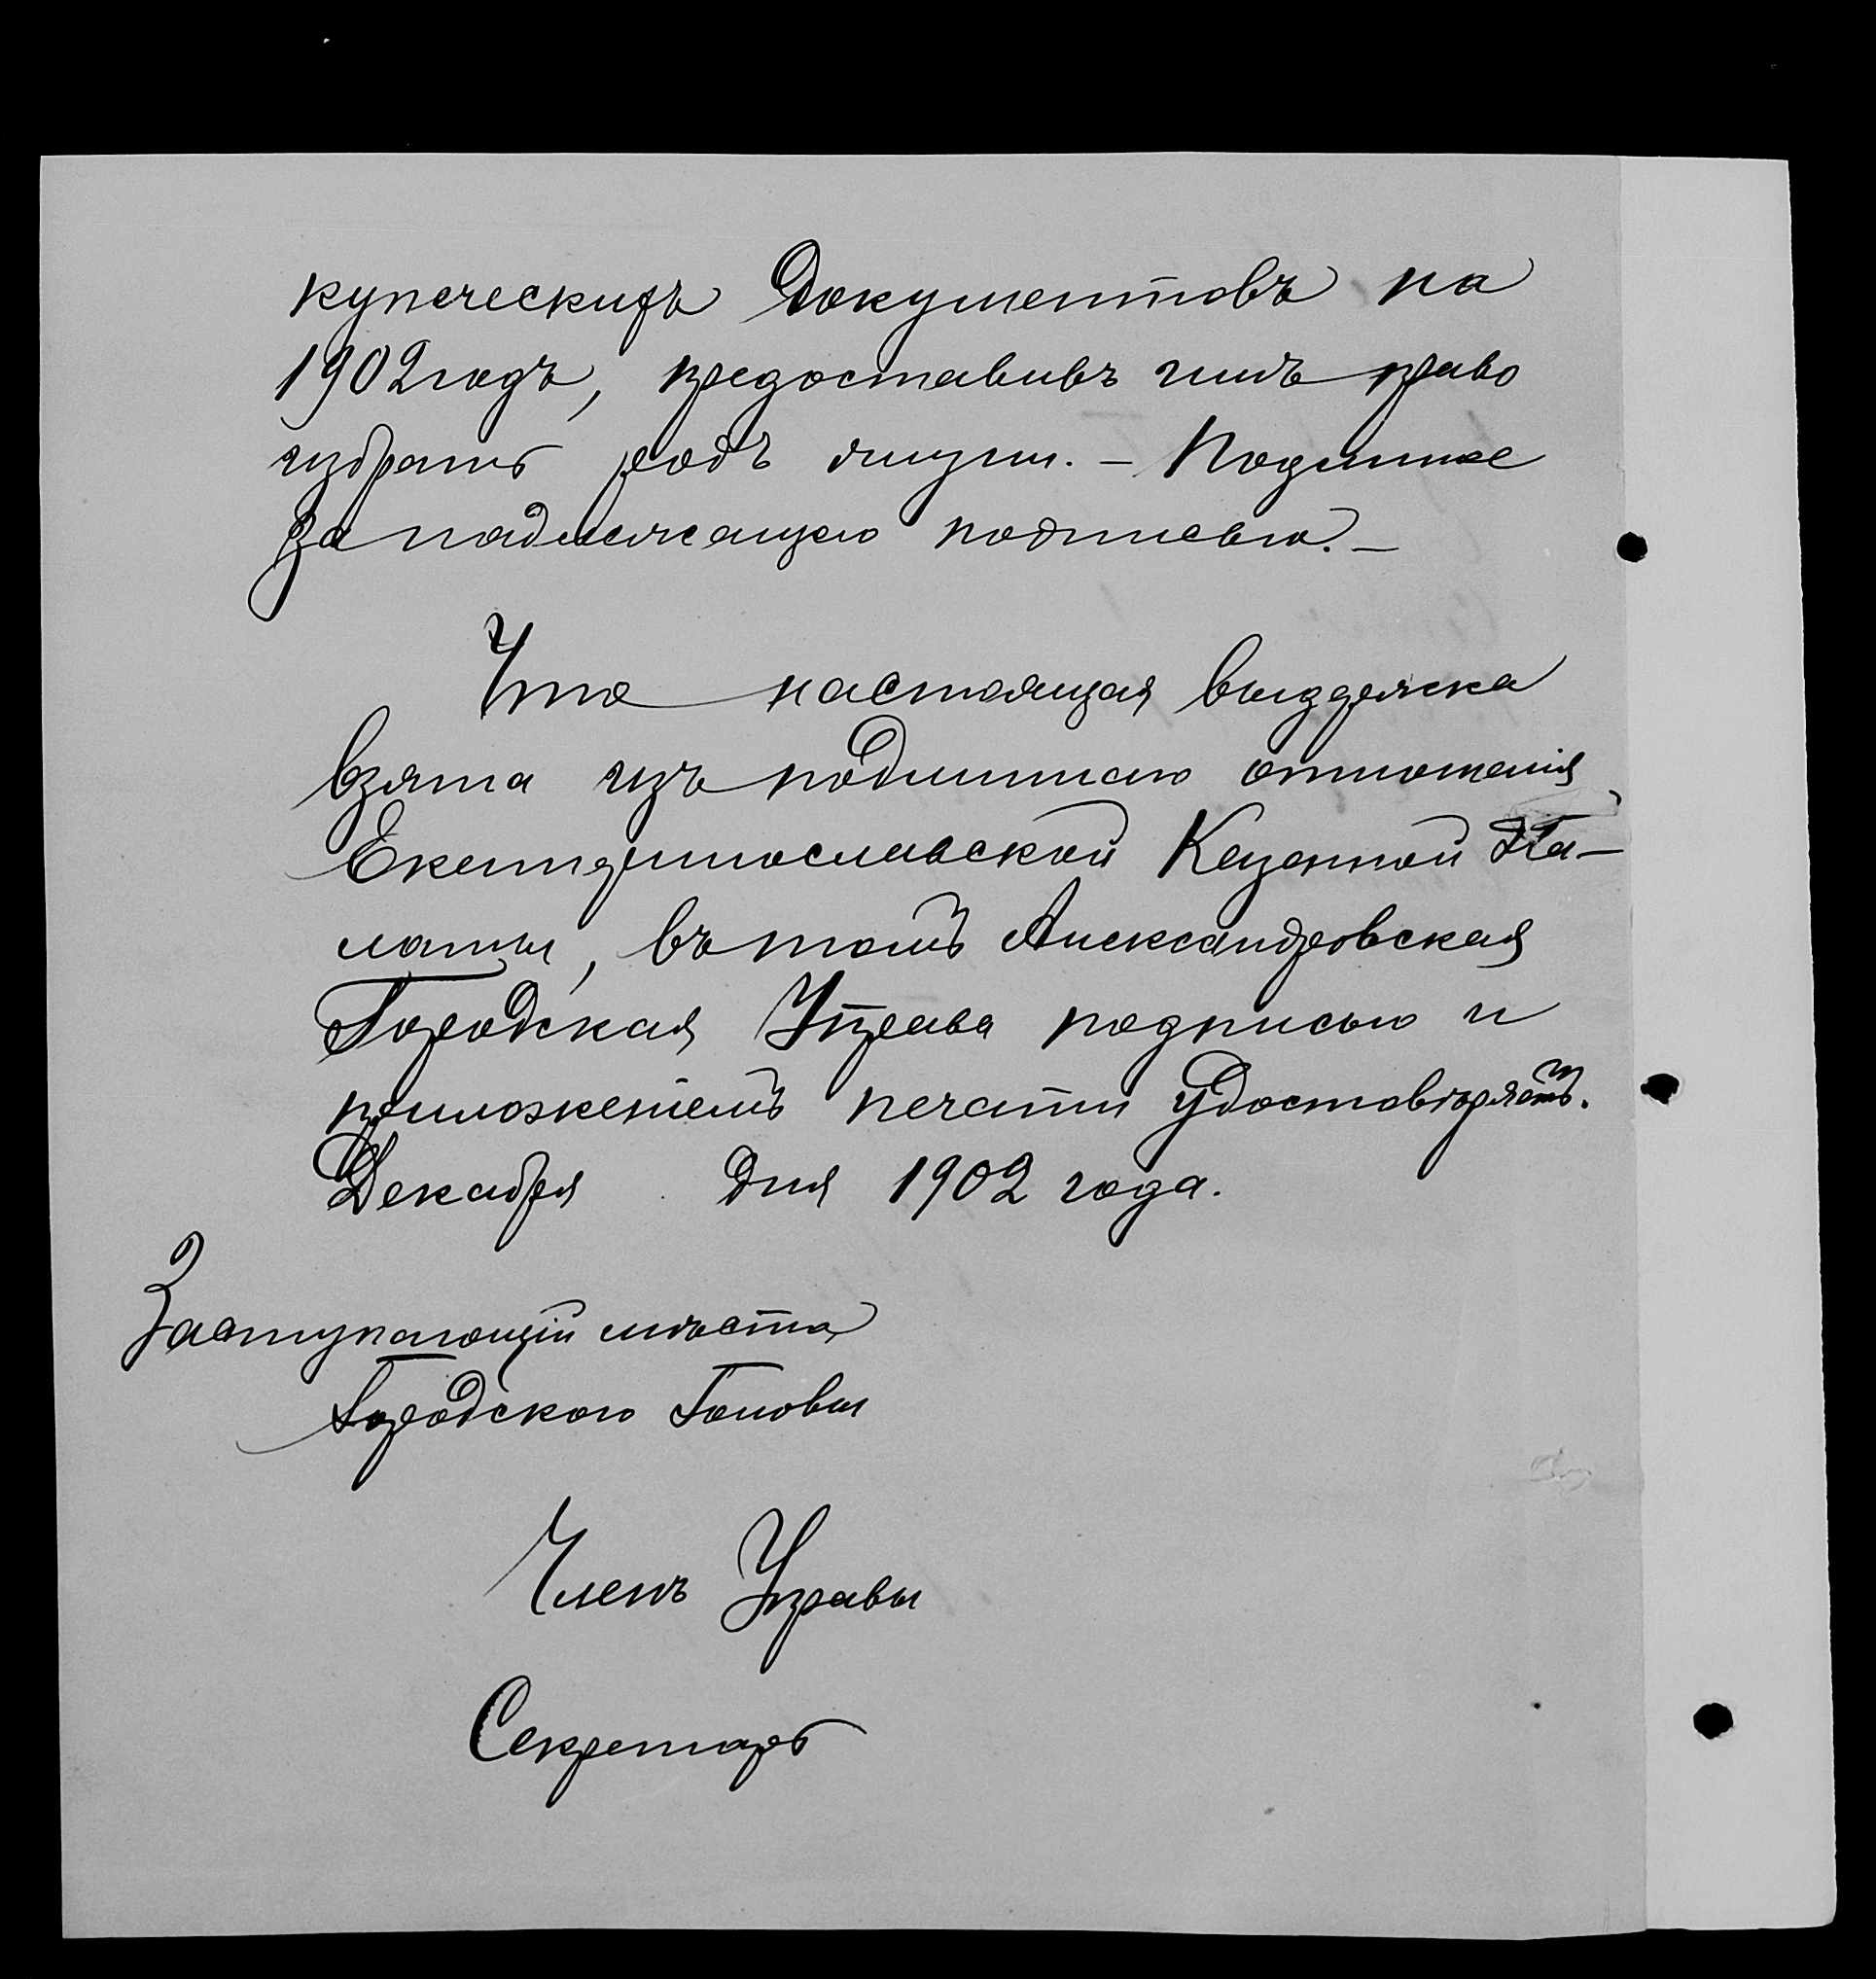 купеческихъ документовъ на
1902 годъ, предоставивъ имъ право
избрать родъ жизни. — Подлинное
за надлежащею подписью. —
Что настоящая выдержка
взята изъ подлиннаго отношенія
Екатеринославской Казенной Па-
латы, въ томъ Александровская
Городская Управа подписью и
приложеніемъ печати удостовѣряетъ.
Декабря дня 1902 года.
Заступающій мѣсто
Городского Головы
Членъ Управы
Секретарь